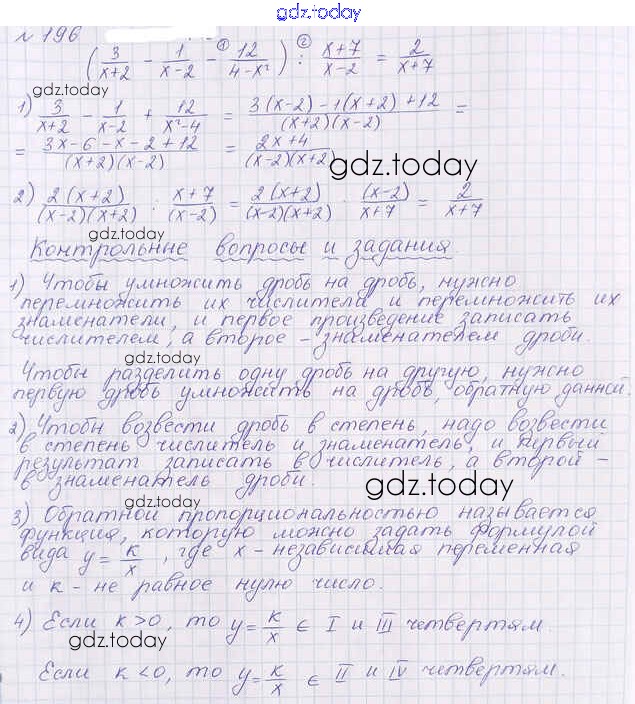 gdz.today
№ 196
(3/(x+2) - 1/(x-2) -① 12/(4-x²)) :② (x+7)/(x-2) = 2/(x+7)
gdz.today
1) 3/(x+2) - 1/(x-2) + 12/(x²-4) = (3(x-2)-1(x+2)+12)/((x+2)(x-2)) =
= (3x-6-x-2+12)/((x+2)(x-2)) = (2x+4)/((x-2)(x+2))
gdz.today
2) 2(x+2)/((x-2)(x+2)) : (x+7)/(x-2) = 2(x+2)/((x-2)(x+2)) · (x-2)/(x+7) = 2/(x+7)
gdz.today
Контрольные вопросы и задания.
1) Чтобы умножить дробь на дробь, нужно
перемножить их числители и перемножить их
знаменатели, и первое произведение записать
числителем, а второе - знаменателем дроби.
Чтобы разделить одну дробь на другую, нужно
первую дробь умножить на дробь, обратную данной.
2) Чтобы возвести дробь в степень, надо возвести
в степень числитель и знаменатель, и первый
результат записать в числитель, а второй -
в знаменатель дроби.
gdz.today
gdz.today
3) Обратной пропорциональностью называется
функция, которую можно задать формулой
вида y = k/x, где x - независимая переменная
и k - не равное нулю число.
4) Если k>0, то y = k/x ∈ I и III четвертям.
gdz.today
Если k<0, то y = k/x ∈ II и IV четвертям.